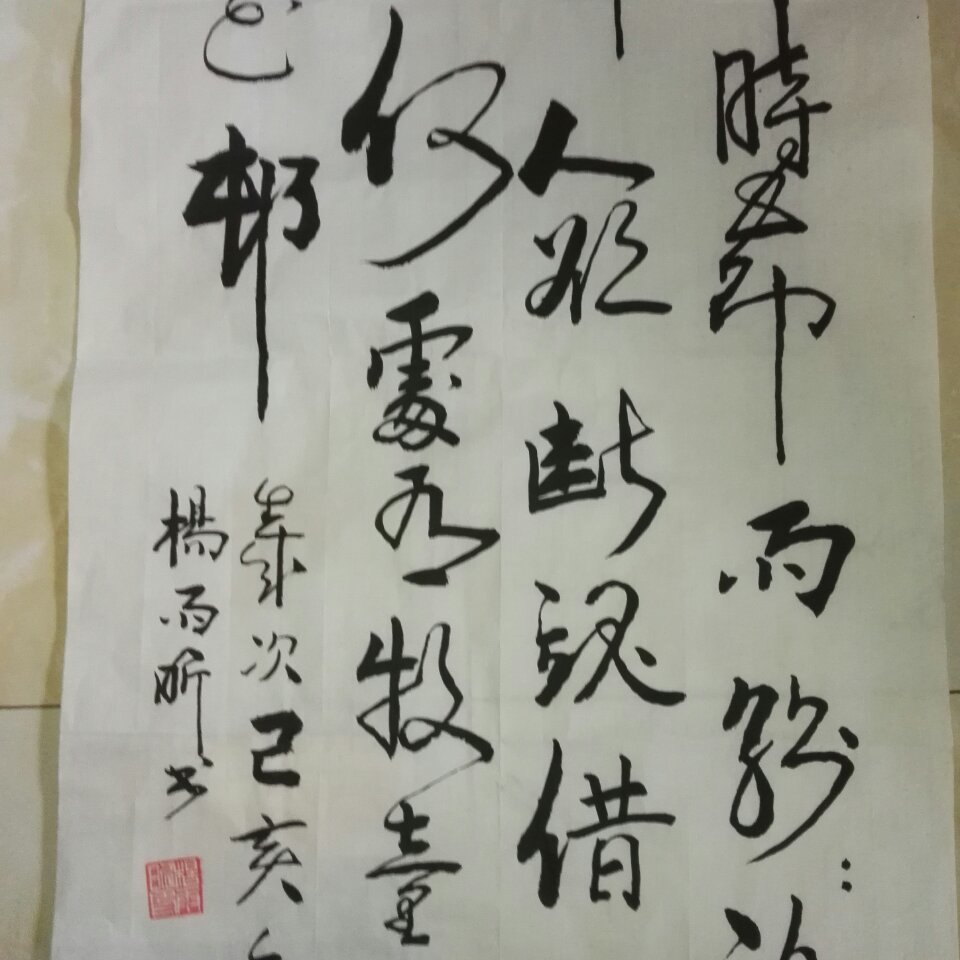 時節雨紛：
人欲斷魂借
何處有牧童
邨
歲次己亥
楊雨昕书